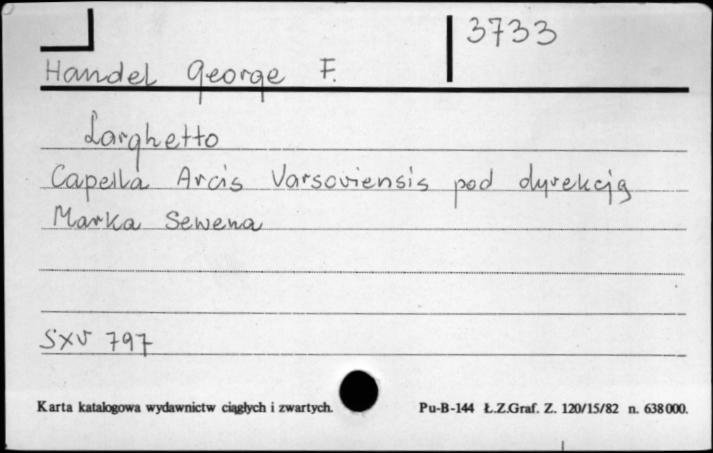 3733
Handel George F.
Larghetto
Capella Arcis Varsoviensis pod dyrekcją
Marka Sewena
SXV 797
Karta katalogowa wydawnictw ciągłych i zwartych. Pu-B-144 Ł.Z.Graf. Z. 120/15/82 n. 638000.